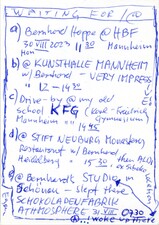 WAITING FOR / OD
a) Bernhard Hoppe @ HBF
30 VIII 2023 11 30 Mannheim
Hom
b) @ KUNSTHALLE MANNHEIM
w/ Bernhard - VERY IMPRESS
12 - 14 30
c) Drive-by @ my old
school KFG (Karl-Friedrich
Mannheim Gymnasium
14 45
d) @ STIFT NEUBURG Monastery
Restaurant w/ Bernhard
Heidelberg - 15 30 - then ALDI
e) @ Bernhardt STUDIO in
Schönau - slept there
SCHOKOLADENFABRIK
ATHMOSPHERE 31 VIII 0730
@ woke up there